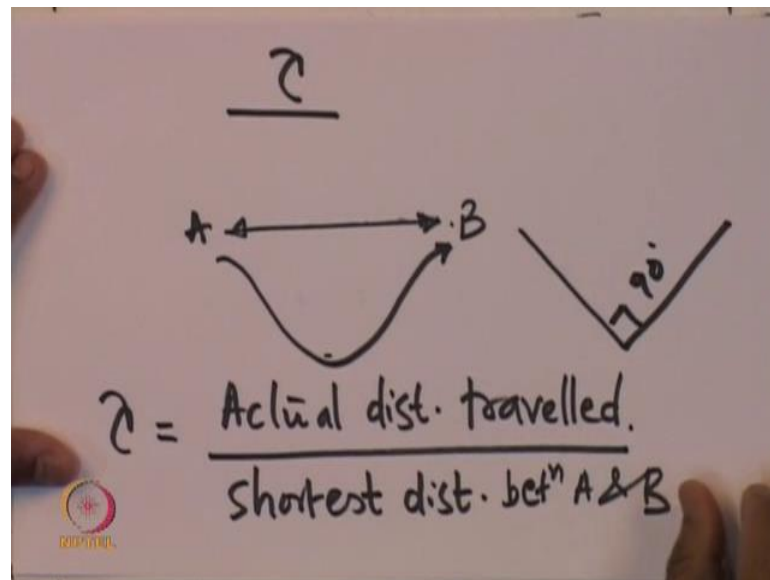 τ
A B
90°
τ = Actual dist. travelled.
shortest dist. betⁿ A & B
NPTEL